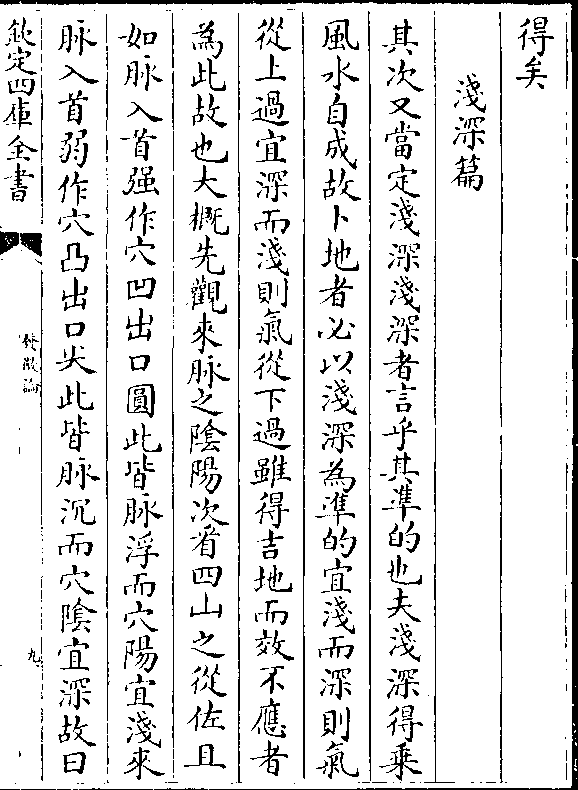 得矣
淺深篇
其次又當定淺深淺深者言乎其準的也夫淺深得乗
風水自成故卜地者必以淺深為準的宜淺而深則氣
從上過宜深而淺則氣從下過雖得吉地而效不應者
為此故也大概先觀來脉之陰陽次看四山之從佐且
如脉入首强作穴凹出口圓此皆脉浮而穴陽宜淺來
脉入首弱作穴凸出口尖此皆脉沉而穴陰宜深故曰
欽定四庫全書
發微論
九